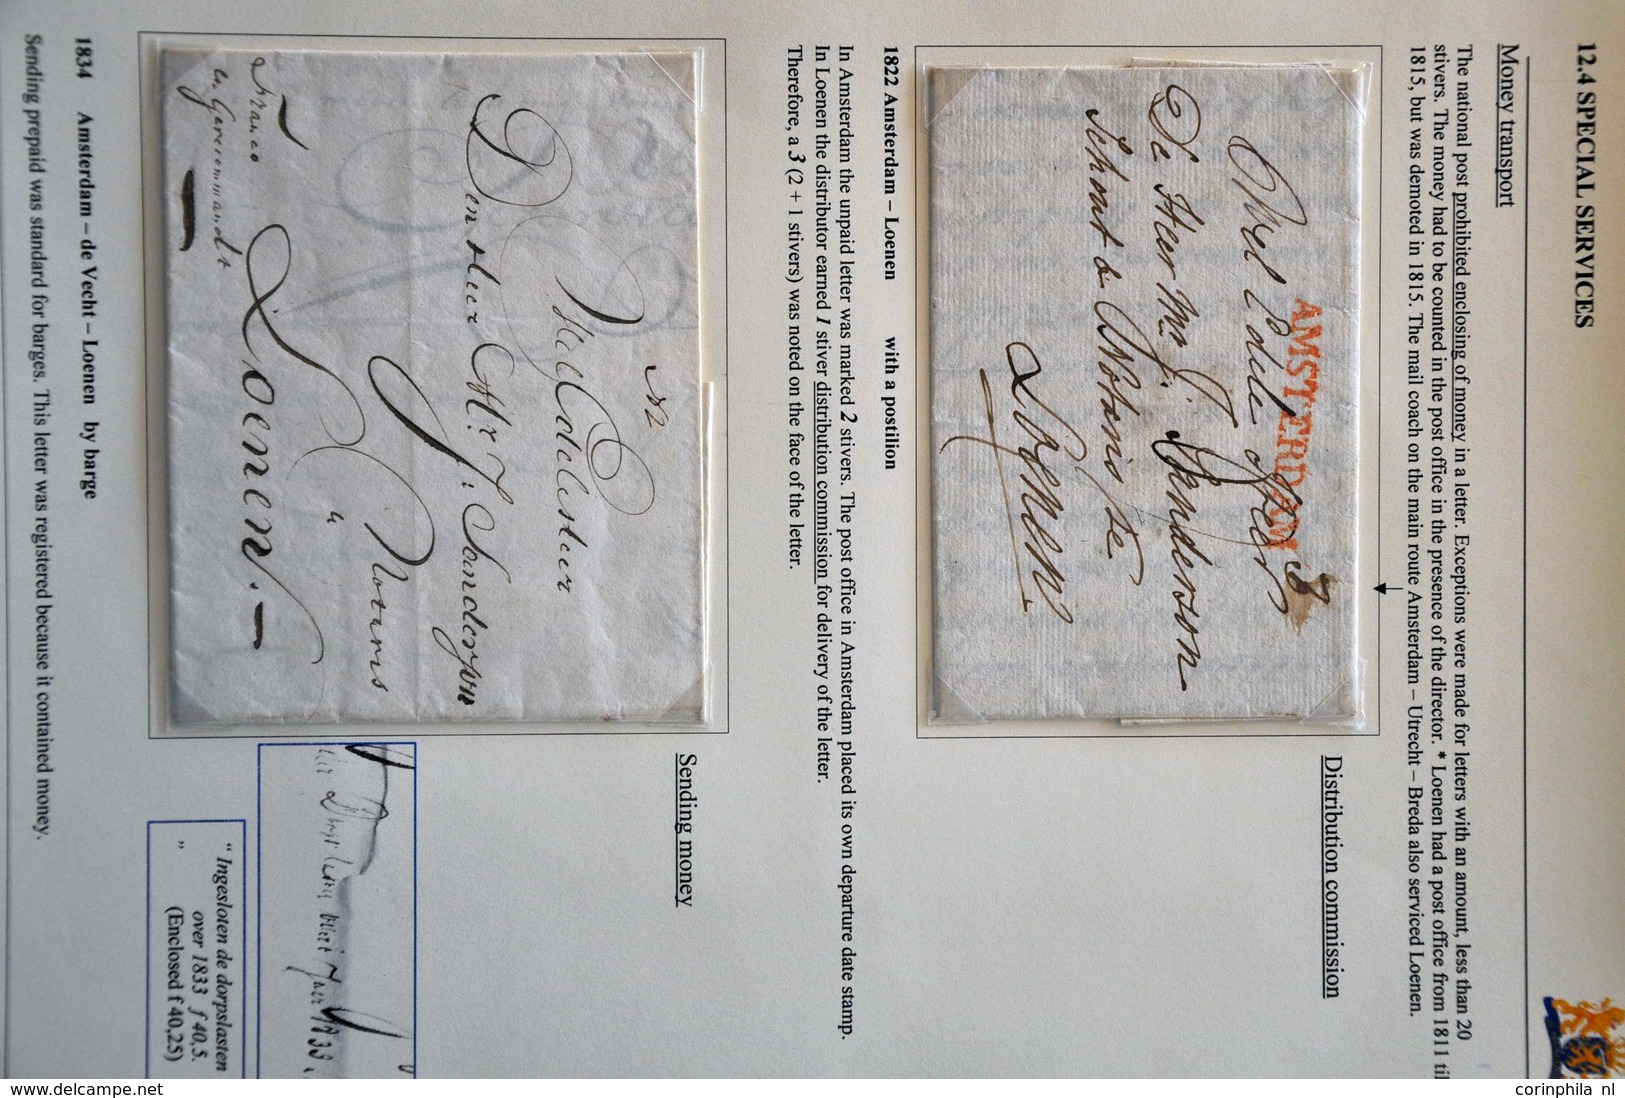 12.4 SPECIAL SERVICES
Money transport
The national post prohibited enclosing of money in a letter. Exceptions were made for letters with an amount, less than 20
stivers. The money had to be counted in the post office in the presence of the director. * Loenen had a post office from 1811 til
1815, but was demoted in 1815. The mail coach on the main route Amsterdam – Utrecht – Breda also serviced Loenen.
AMSTERDAM 3
Wel Edele
De Heer Mr. J. Sanderson
Loenen
Distribution commission
1822 Amsterdam – Loenen with a postilion
In Amsterdam the unpaid letter was marked 2 stivers. The post office in Amsterdam placed its own departure date stamp.
In Loenen the distributor earned 1 stiver distribution commission for delivery of the letter.
Therefore, a 3 (2 + 1 stivers) was noted on the face of the letter.
N2
Den Heer Mr. J. Sanderson
Notaris
a
Loenen.
Franco
Sending money
1833
“ Ingesloten de dorpslasten
over 1833 ƒ 40,5.
” (Enclosed f 40,25)
1834 Amsterdam – de Vecht – Loenen by barge
Sending prepaid was standard for barges. This letter was registered because it contained money.
www.delcampe.net
corinphila nl